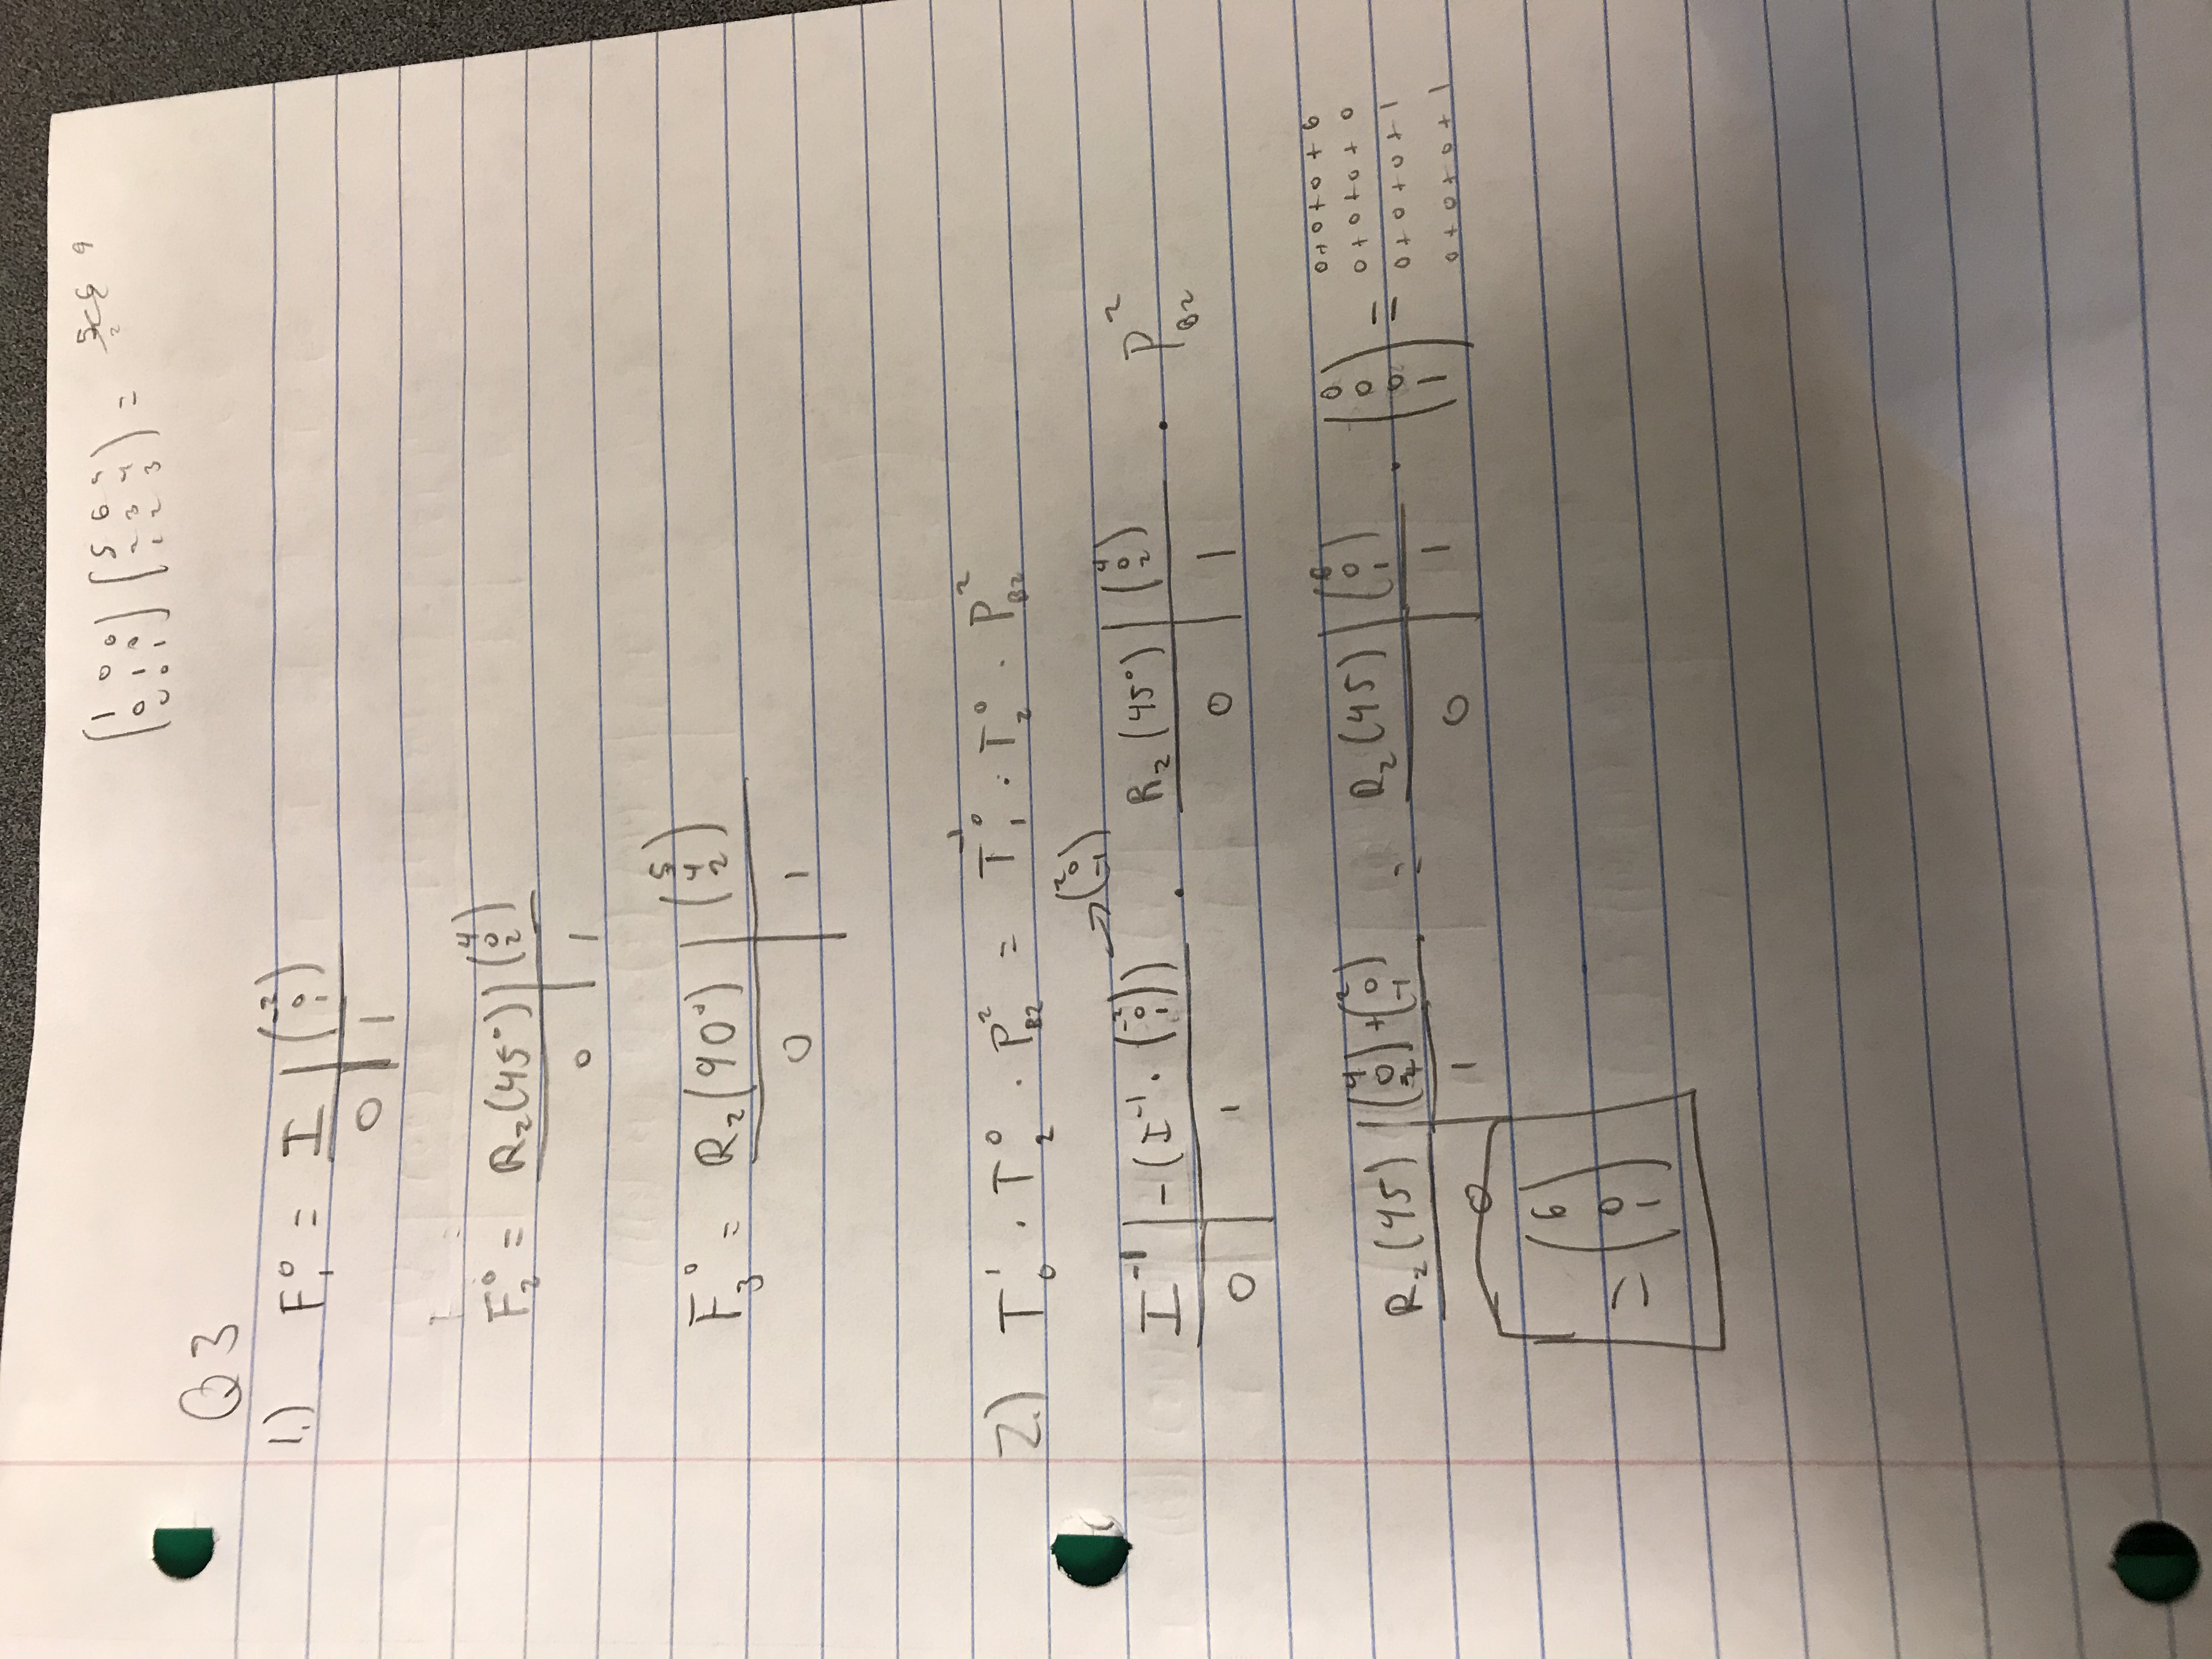 (1 0 0) (5 6 9) = 5 6 9
(0 1 0) (2 3 4) 2
(0 0 1) (1 2 3)
Q3
1.) F₁⁰ = I | (-2 0 1)
0 | 1
F₂⁰ = Rz(45°) | (4 0 2)
0 | 1
F₃⁰ = Rz(90°) | (5 4 2)
0 | 1
2.) T₀¹ · T₂⁰ · P_B2² = T₁⁰⁻¹ · T₂⁰ · P_B2²
→ (2 0 -1)
I⁻¹ | -(I⁻¹ · (-2 0 1)) · Rz(45°) | (4 0 2) · P_B2²
0 | 1 0 | 1
Rz(45) | (4 0 2) + (2 0 -1) = Rz(45) | (6 0 1) · (0 0 0 1) =
0 | 1 0 | 1
0+0+0+6
0+0+0+0
0+0+0+1
0+0+0+1
= (6 0 1)